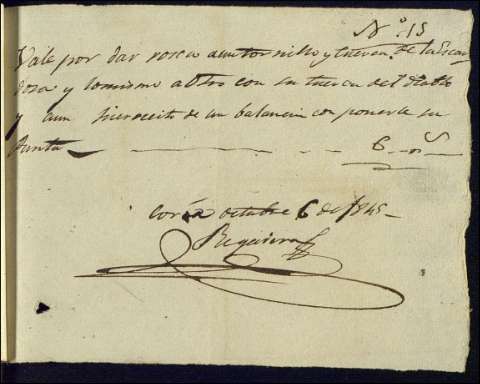 N.º 15
Vale por dar rosca a un tornillo y tuerca de la Escar
dosa y lo mismo a otro con su tuerca del tablo
y a un hierrecito de un balancin con ponerle su
punta 6 rs
Coruña octubre 6 de 1845
Regueira